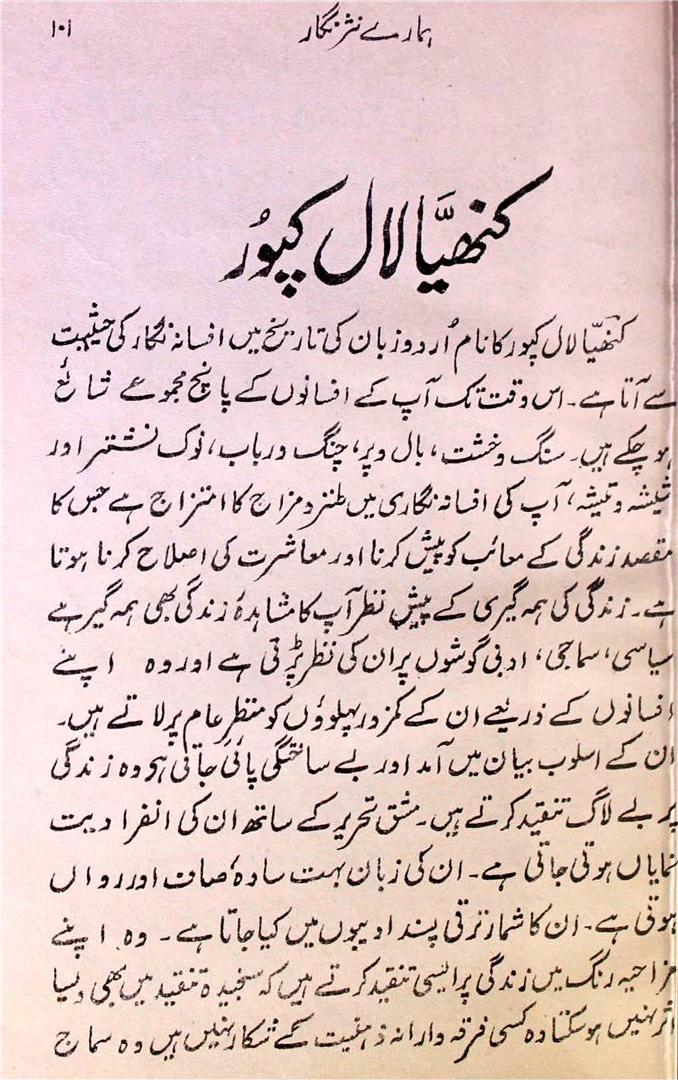 ہمارے نثر نگار ۱۰۱
کنھیّا لال کپُور
کنھیّا لال کپور کا نام اُردو زبان کی تاریخ میں افسانہ نگار کی حیثیت
سے آتا ہے۔ اس وقت تک آپ کے افسانوں کے پانچ مجموعے شائع
ہو چکے ہیں۔ سنگ و خشت، بال و پر، چنگ و رباب، نوک نشتر اور
شیشہ و تیشہ، آپ کی افسانہ نگاری میں طنز و مزاج کا امتزاج ہے جس کا
مقصد زندگی کے معائب کو پیش کرنا اور معاشرت کی اصلاح کرنا ہوتا
ہے۔ زندگی کی ہمہ گیری کے پیشِ نظر آپ کا مشاہدۂ زندگی بھی ہمہ گیر ہے
سیاسی، سماجی، ادبی گوشوں پر ان کی نظر پڑتی ہے اور وہ اپنے
افسانوں کے ذریعے ان کے کمزور پہلوؤں کو منظرِ عام پر لاتے ہیں۔
ان کے اسلوب بیان میں آمد اور بے ساختگی پائی جاتی ہی وہ زندگی
پر بے لاگ تنقید کرتے ہیں۔ مشق تحریر کے ساتھ ان کی انفرادیت
نمایاں ہوتی جاتی ہے۔ ان کی زبان بہت سادہ، صاف اور رواں
ہوتی ہے۔ ان کا شمار ترقی پسند ادیبوں میں کیا جاتا ہے۔ وہ اپنے
مزاحیہ رنگ میں زندگی پر ایسی تنقید کرتے ہیں کہ سنجیدہ تنقید میں بھی ویسا
اثر نہیں ہو سکتا وہ کسی فرقہ وارانہ ذہنیت کے شکار نہیں ہیں وہ سماج